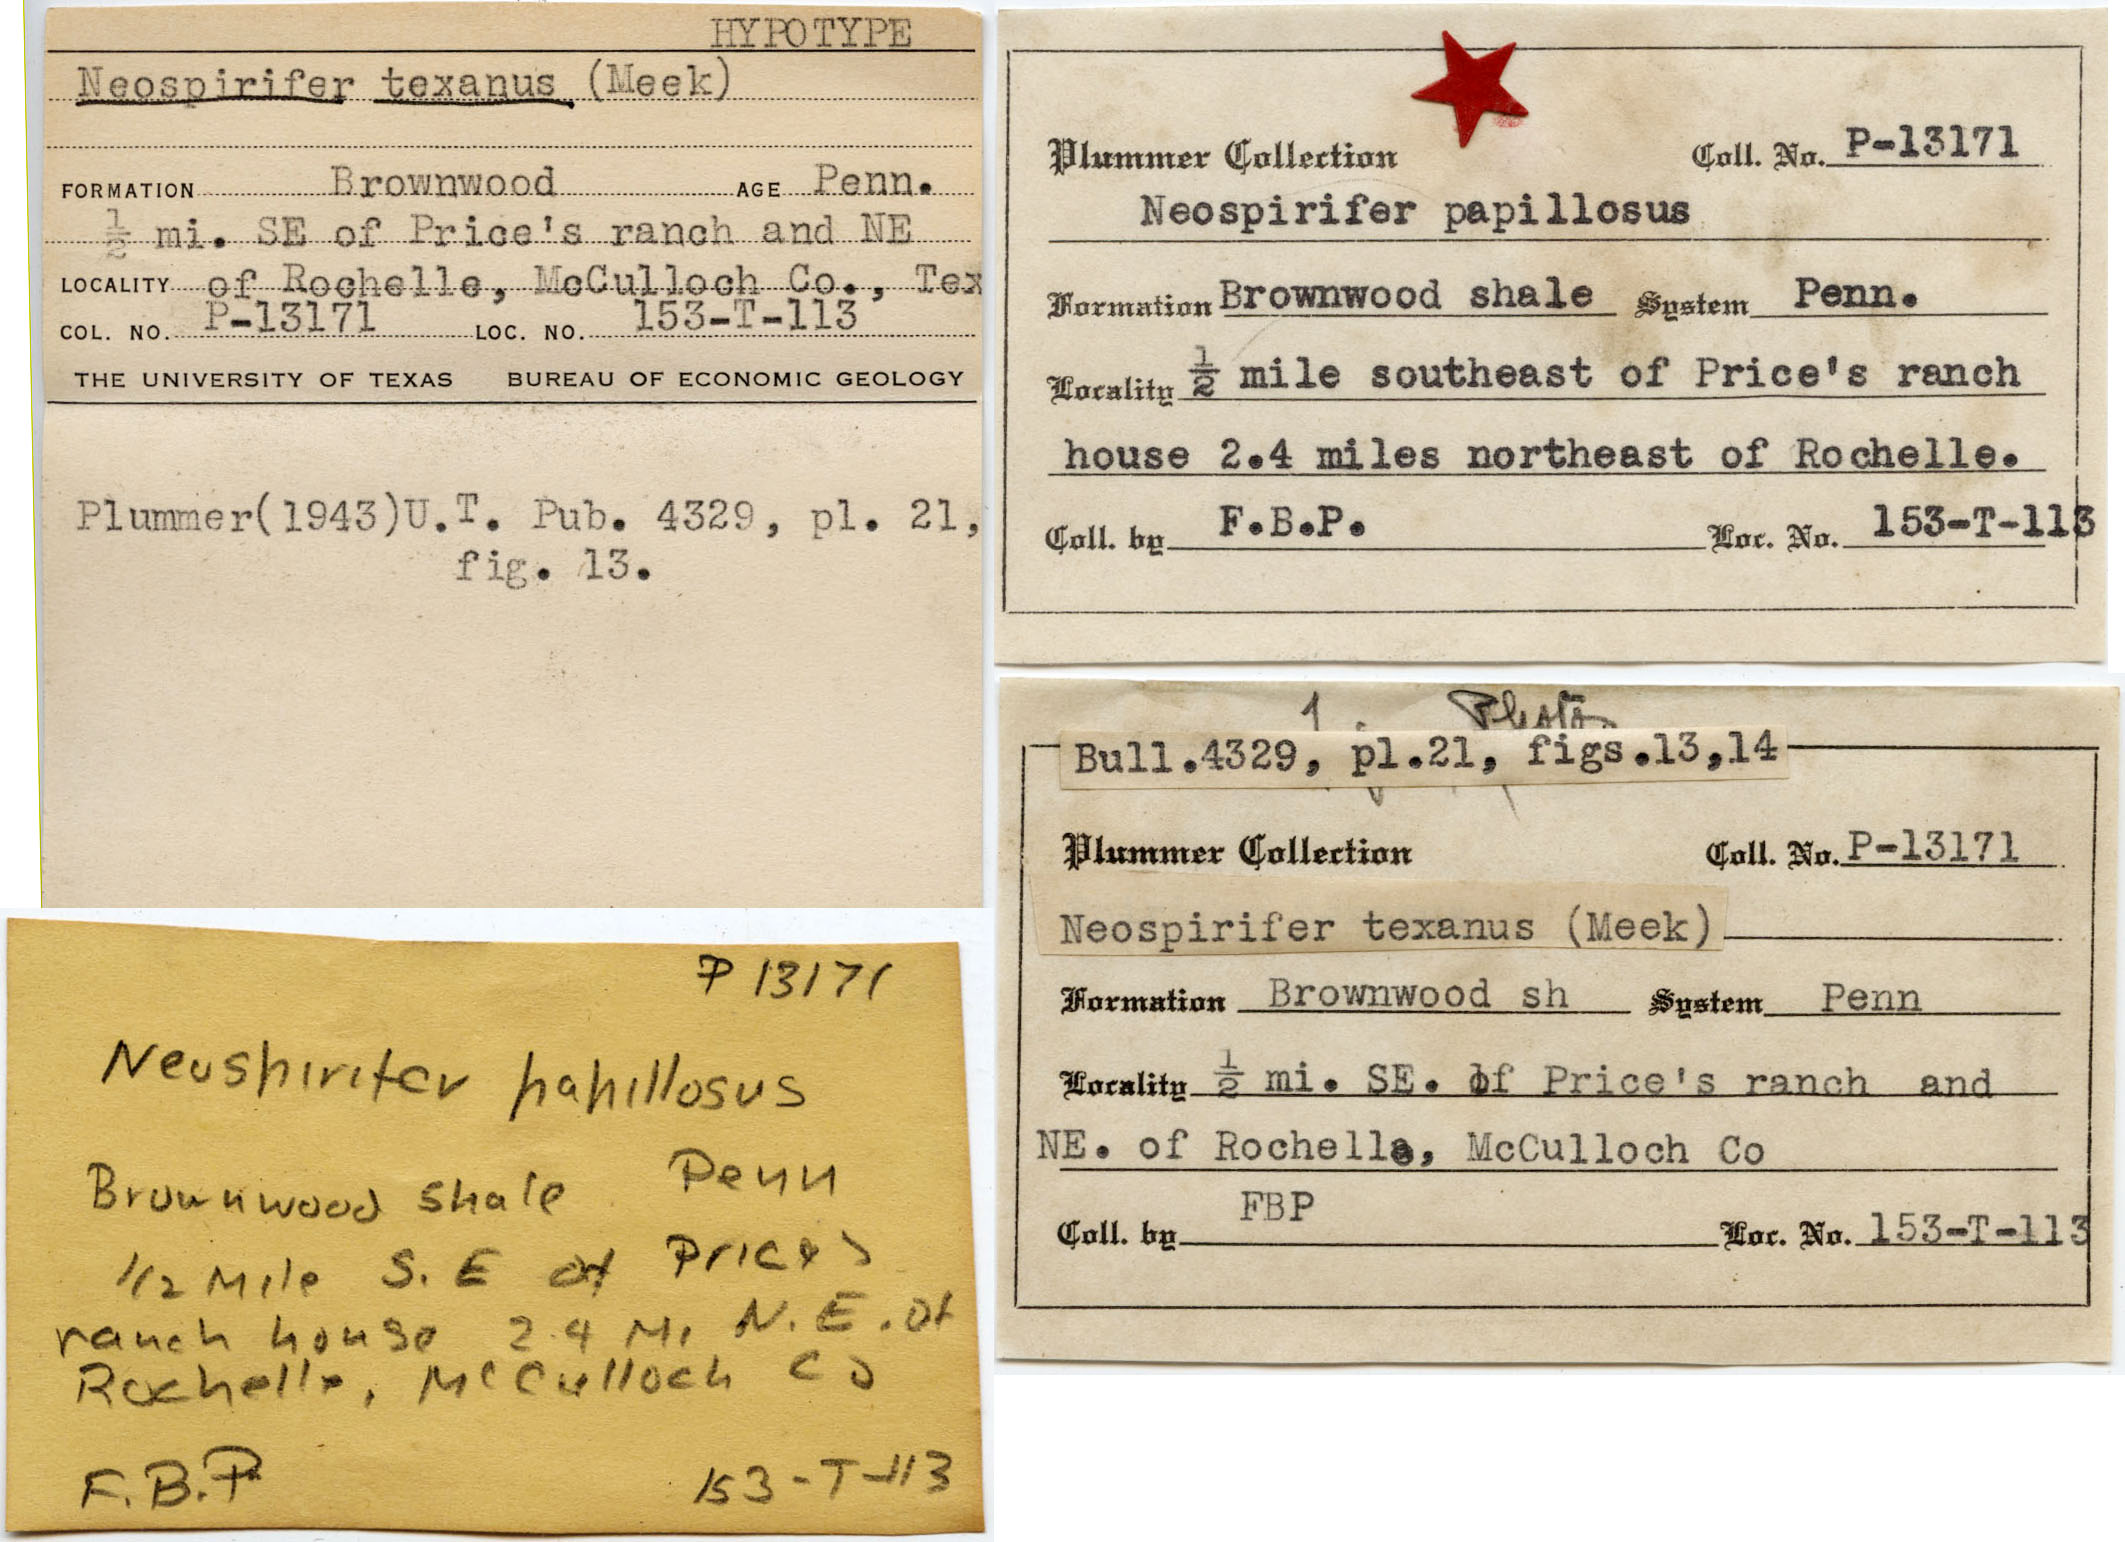 HYPOTYPE
Neospirifer texanus (Meek)
FORMATION Brownwood AGE Penn.
½ mi. SE of Price's ranch and NE
LOCALITY of Rochelle, McCulloch Co., Tex
COL. NO. P-13171 LOC. NO. 153-T-113
THE UNIVERSITY OF TEXAS BUREAU OF ECONOMIC GEOLOGY
Plummer(1943)U.T. Pub. 4329, pl. 21,
fig. 13.
Plummer Collection Coll. No. P-13171
Neospirifer papillosus
Formation Brownwood shale System Penn.
Locality ½ mile southeast of Price's ranch
house 2.4 miles northeast of Rochelle.
Coll. by F.B.P. Loc. No. 153-T-113
Bull.4329, pl.21, figs.13,14
Plummer Collection Coll. No. P-13171
Neospirifer texanus (Meek)
Formation Brownwood sh System Penn
Locality ½ mi. SE. of Price's ranch and
NE. of Rochelle, McCulloch Co
Coll. by FBP Loc. No. 153-T-113
P 13171
Neospirifer papillosus
Brownwood shale Penn
1/2 Mile S. E of Prices
ranch house 2.4 Mi N.E. of
Rochelle, McCulloch Co
F.B.P 153-T-113